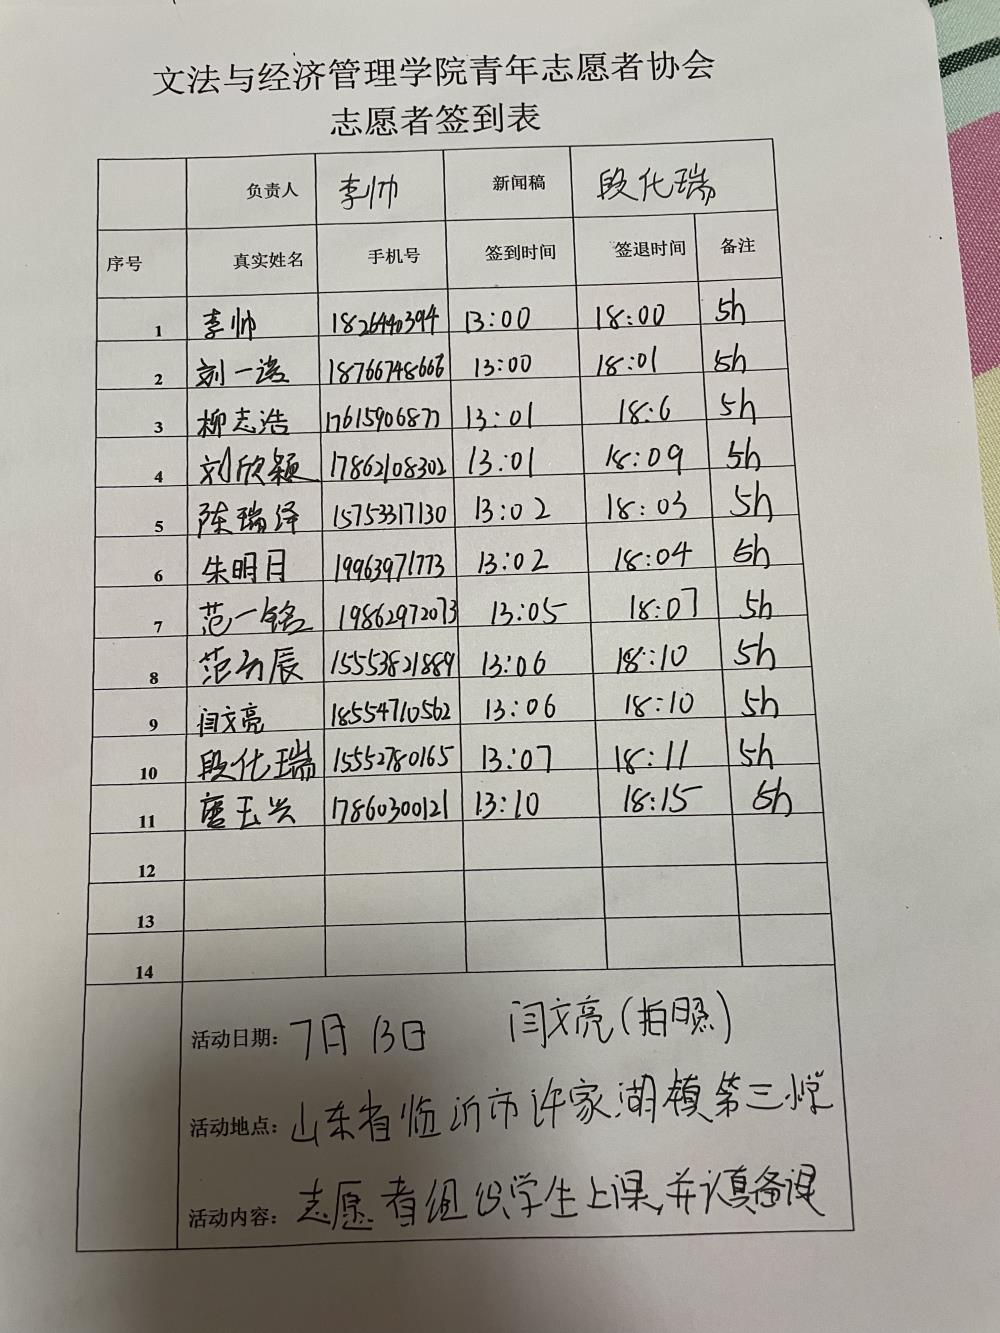 文法与经济管理学院青年志愿者协会
志愿者签到表
负责人 李帅 新闻稿 段化瑞
序号 真实姓名 手机号 签到时间 签退时间 备注
1 李帅 1826440394 13:00 18:00 5h
2 刘一诺 18766748666 13:00 18:01 5h
3 柳志浩 17615906877 13:01 18:6 5h
4 刘欣颖 17862108302 13:01 18:09 5h
5 陈瑞泽 15753317130 13:02 18:03 5h
6 朱明月 19963971773 13:02 18:04 5h
7 范一铭 19862972073 13:05 18:07 5h
8 范 辰 15553821889 13:06 18:10 5h
9 闫文亮 18554710562 13:06 18:10 5h
10 段化瑞 15552780165 13:07 18:11 5h
11 唐玉兴 17860300121 13:10 18:15 5h
12
13
14
活动日期: 7月13日 闫文亮(拍照)
活动地点: 山东省临沂市许家湖镇第三小学
活动内容: 志愿者组织学生上课,并认真备课